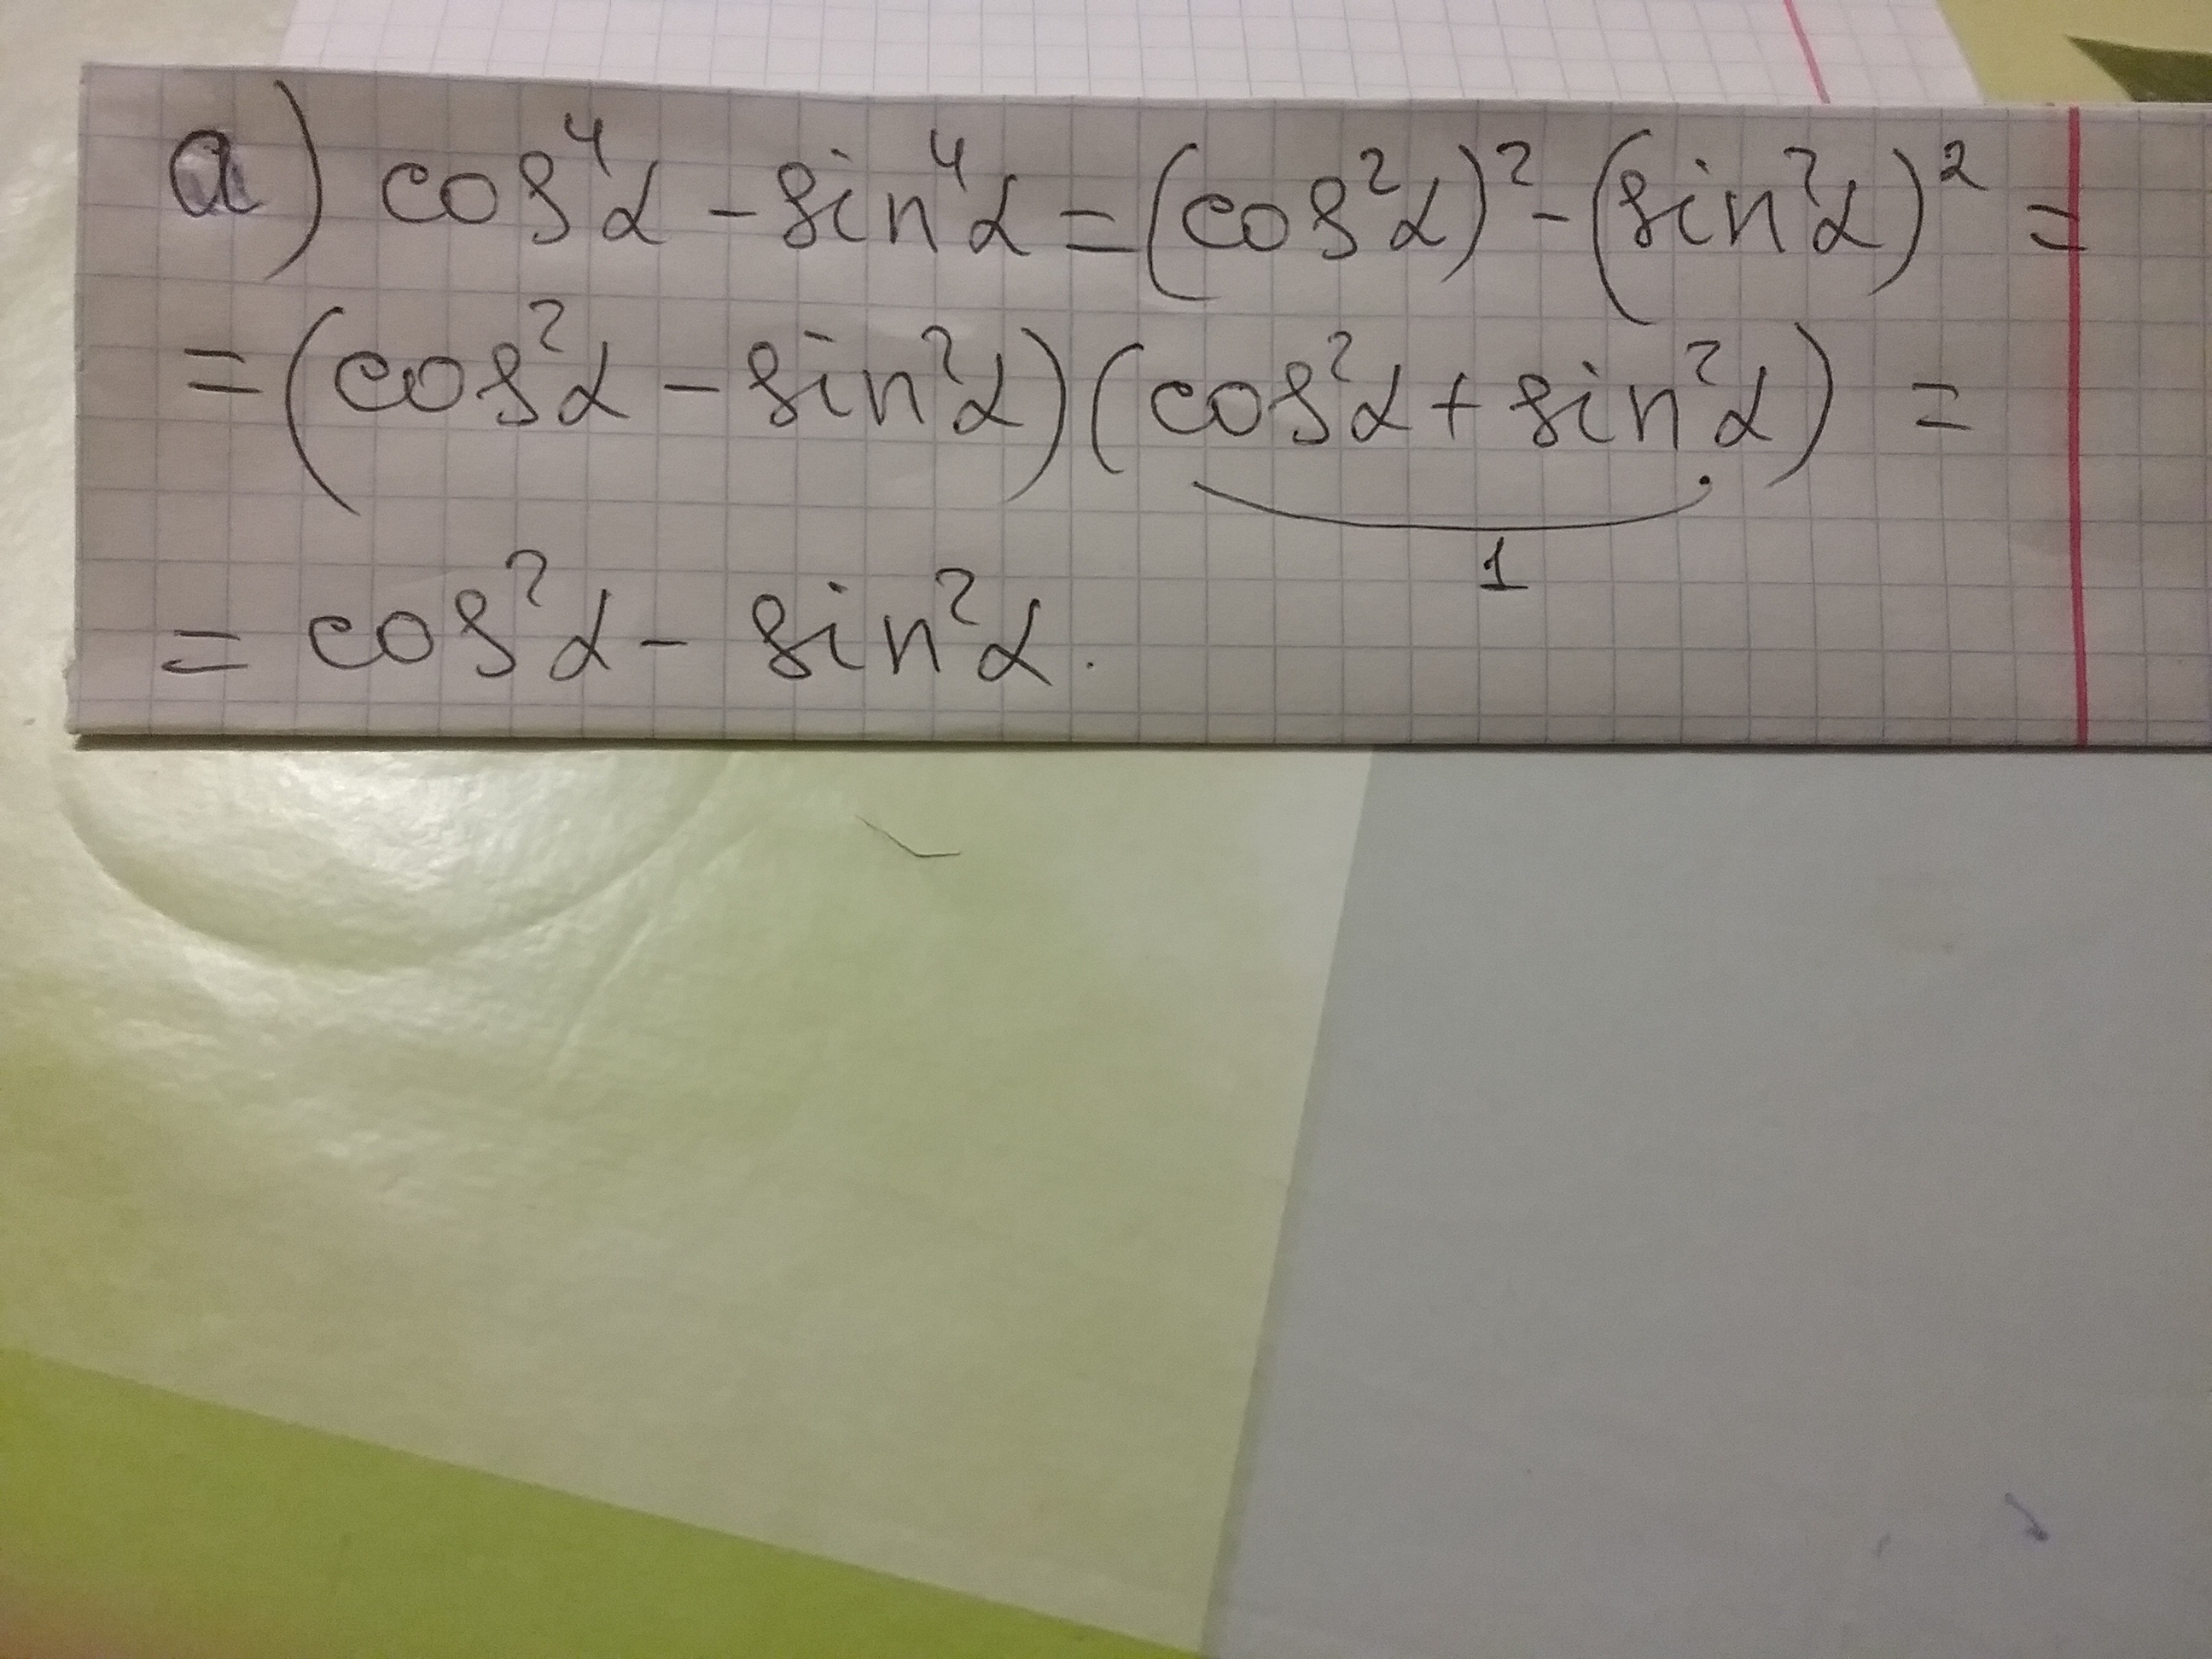 а) cos⁴α - sin⁴α = (cos²α)² - (sin²α)² =
= (cos²α - sin²α)(cos²α + sin²α) =
1
= cos²α - sin²α.